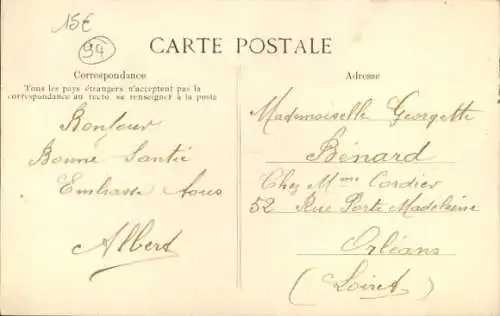 15€
94
CARTE POSTALE
Correspondance
Tous les pays étrangers n'acceptent pas la
correspondance au recto, se renseigner à la poste
Bonjour
Bonne Santé
Embrasse tous
Albert
Adresse
Mademoiselle Georgette
Bénard
Chez Mme Cordier
52 Rue Porte Madeleine
Orléans
(Loiret)